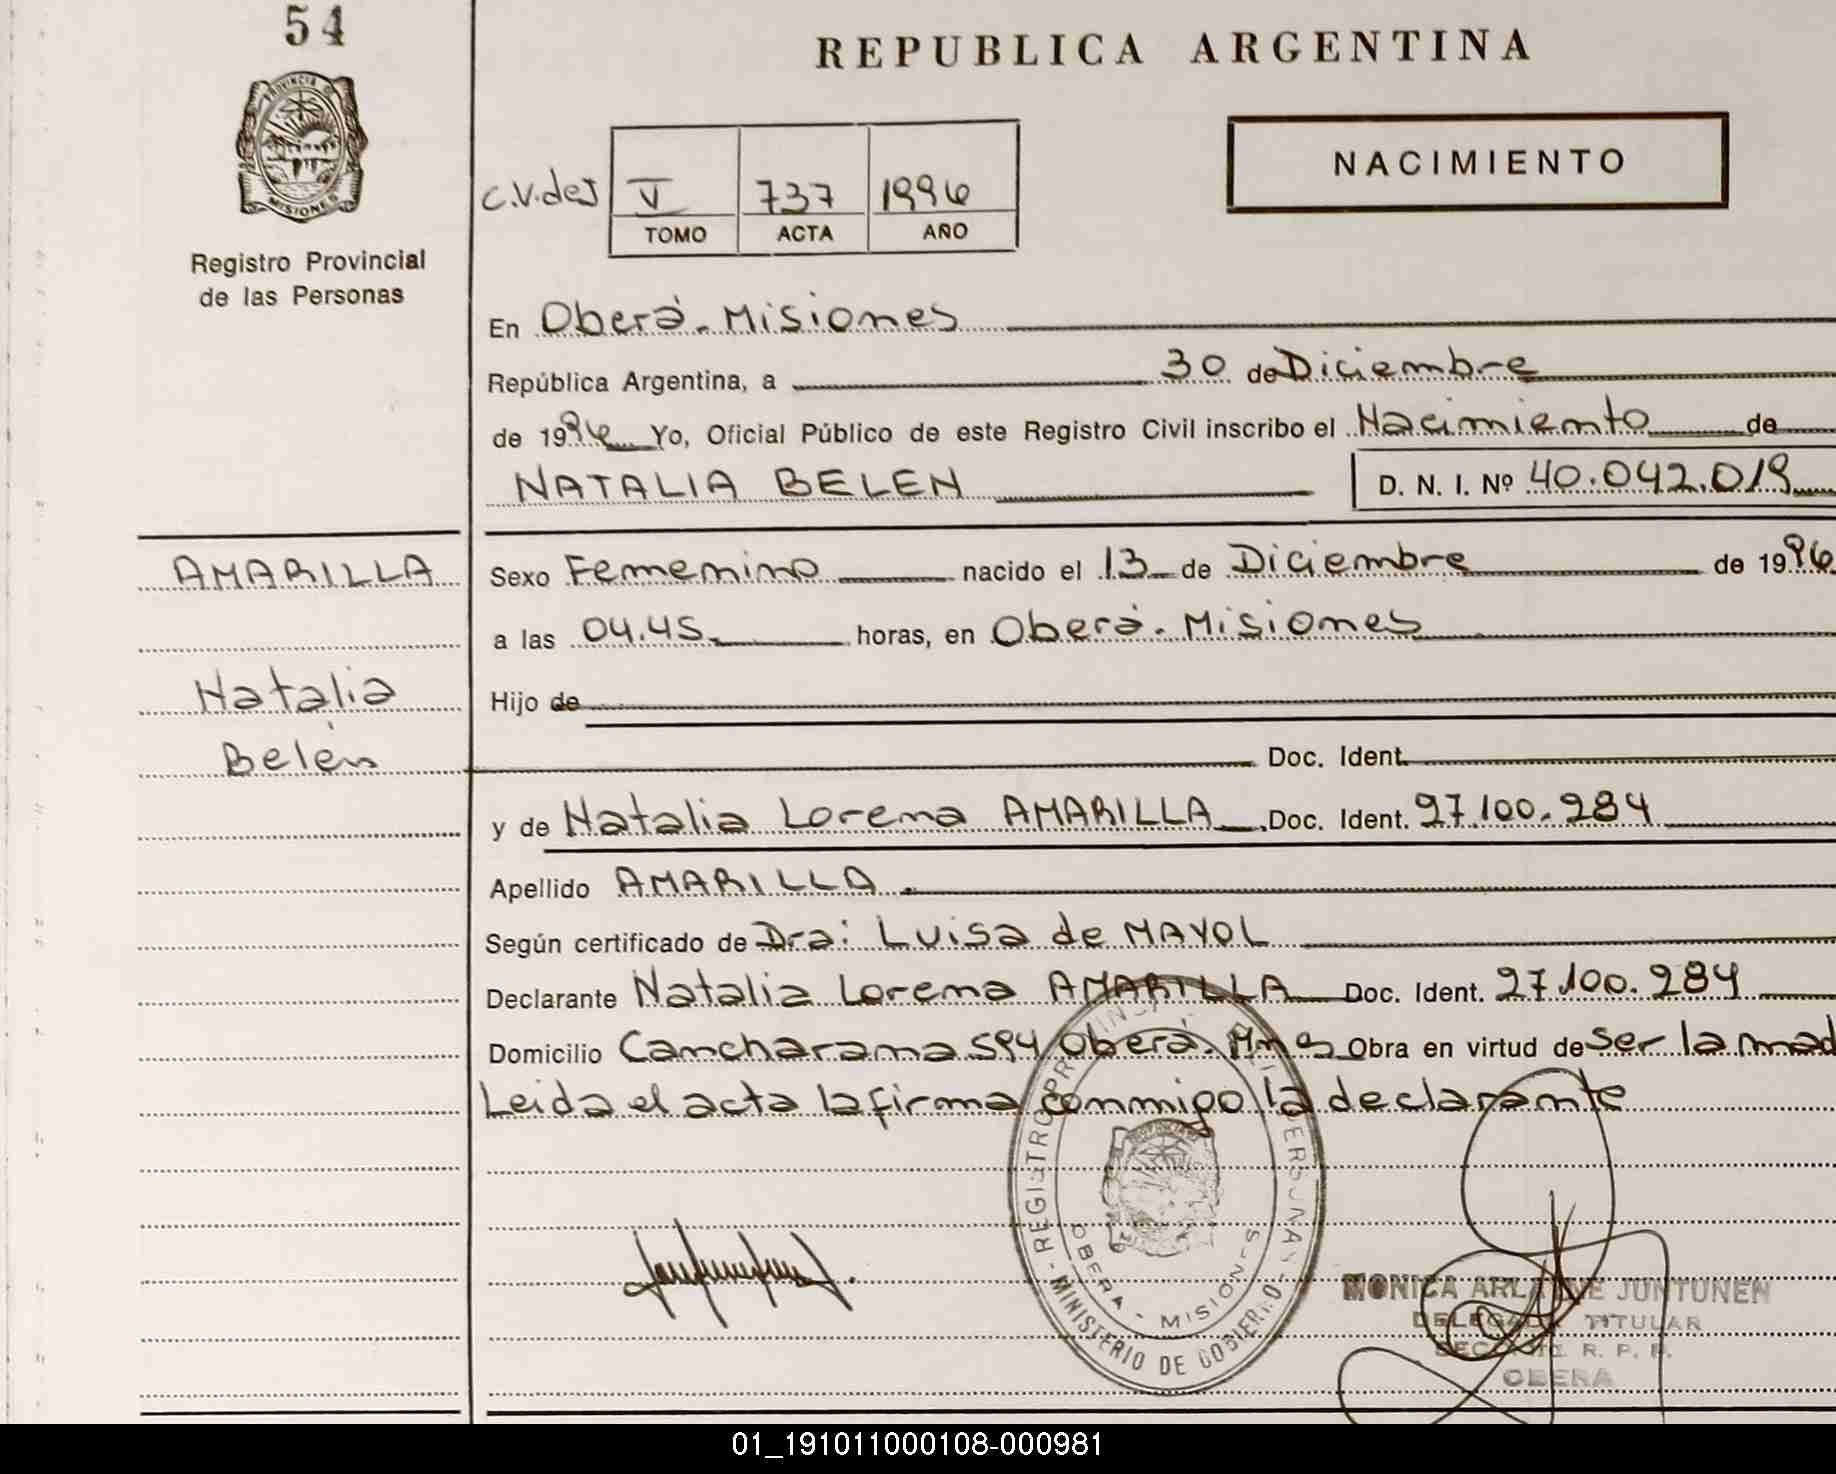 54
REPUBLICA ARGENTINA
NACIMIENTO
PROVINCIA D
MISIONES
Registro Provincial
de las Personas
C.V.deJ V 737 1996
TOMO ACTA AÑO
En Oberá.Misiones
República Argentina, a 30 de Diciembre
de 1996 Yo, Oficial Público de este Registro Civil inscribo el Nacimiento de
NATALIA BELEN D. N. I. Nº 40.042.019
AMARILLA
Natalia
Belén
Sexo Femenino nacido el 13 de Diciembre de 1996
a las 04.45 horas, en Oberá.Misiones
Hijo de
Doc. Ident.
y de Natalia Lorena AMARILLA Doc. Ident. 27.100.284
Apellido AMARILLA
Según certificado de Dra: Luisa de MAYOL
Declarante Natalia Lorena AMARILLA Doc. Ident. 27.100.284
Domicilio Oberá. Obra en virtud de ser la mad
Leida el acta la firma conmigo la declarante
OBERA - MISIONES
MINISTERIO DE GOBIERNO
MONICA JUNTUNEN
DELEGADA TITULAR
R. P. P.
OBERA
01_191011000108-000981